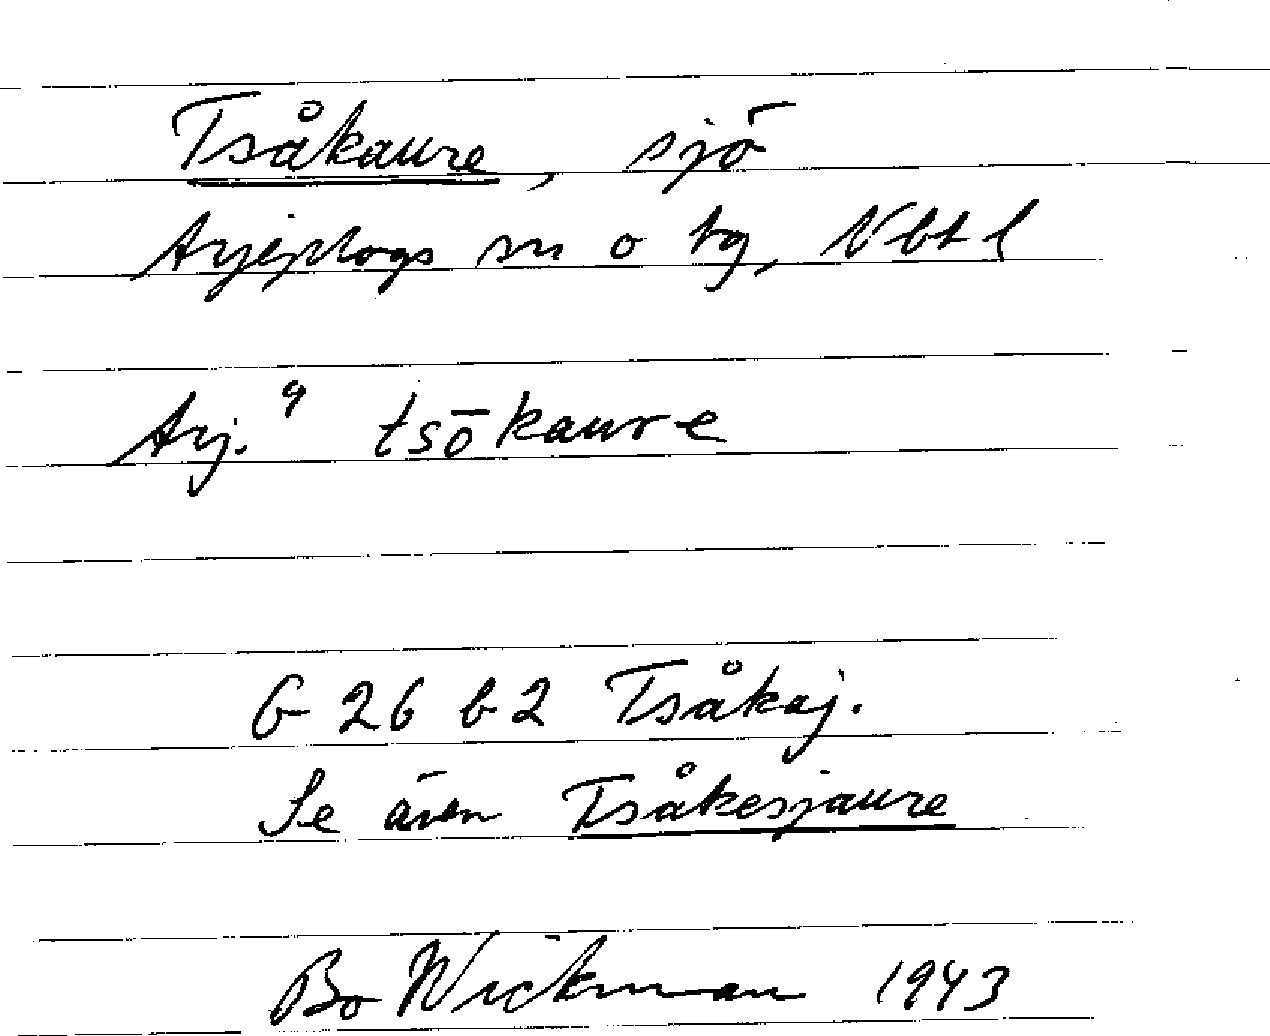 Tsåkaure, sjö
Arjeplogs sn o tg, Nbt l
Arj. 9 tsōkaure
G 26 b 2 Tsåkaj.
Se även Tsåkesjaure
Bo Wickman 1943